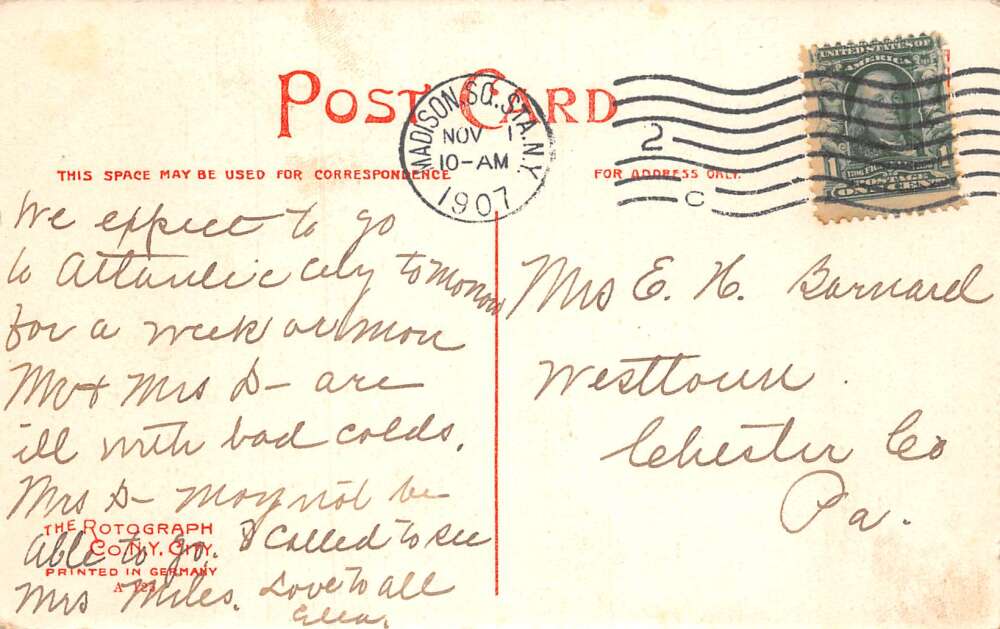 POST CARD
THIS SPACE MAY BE USED FOR CORRESPONDENCE
FOR ADDRESS ONLY.
MADISON SQ. STA. N.Y.
NOV 1
10-AM
1907
2
C
UNITED STATES OF
AMERICA
1 1
POSTAGE
ONE CENT
We expect to go
to Atlantic City tomorrow
for a week or more
Mr & Mrs D- are
ill with bad colds.
Mrs D- may not be
able to go. I called to see
Mrs Miles. Love to all
Ella.
Mrs E. H. Barnard
Westtown.
Chester Co
Pa.
THE ROTOGRAPH
CO. N.Y. CITY.
PRINTED IN GERMANY